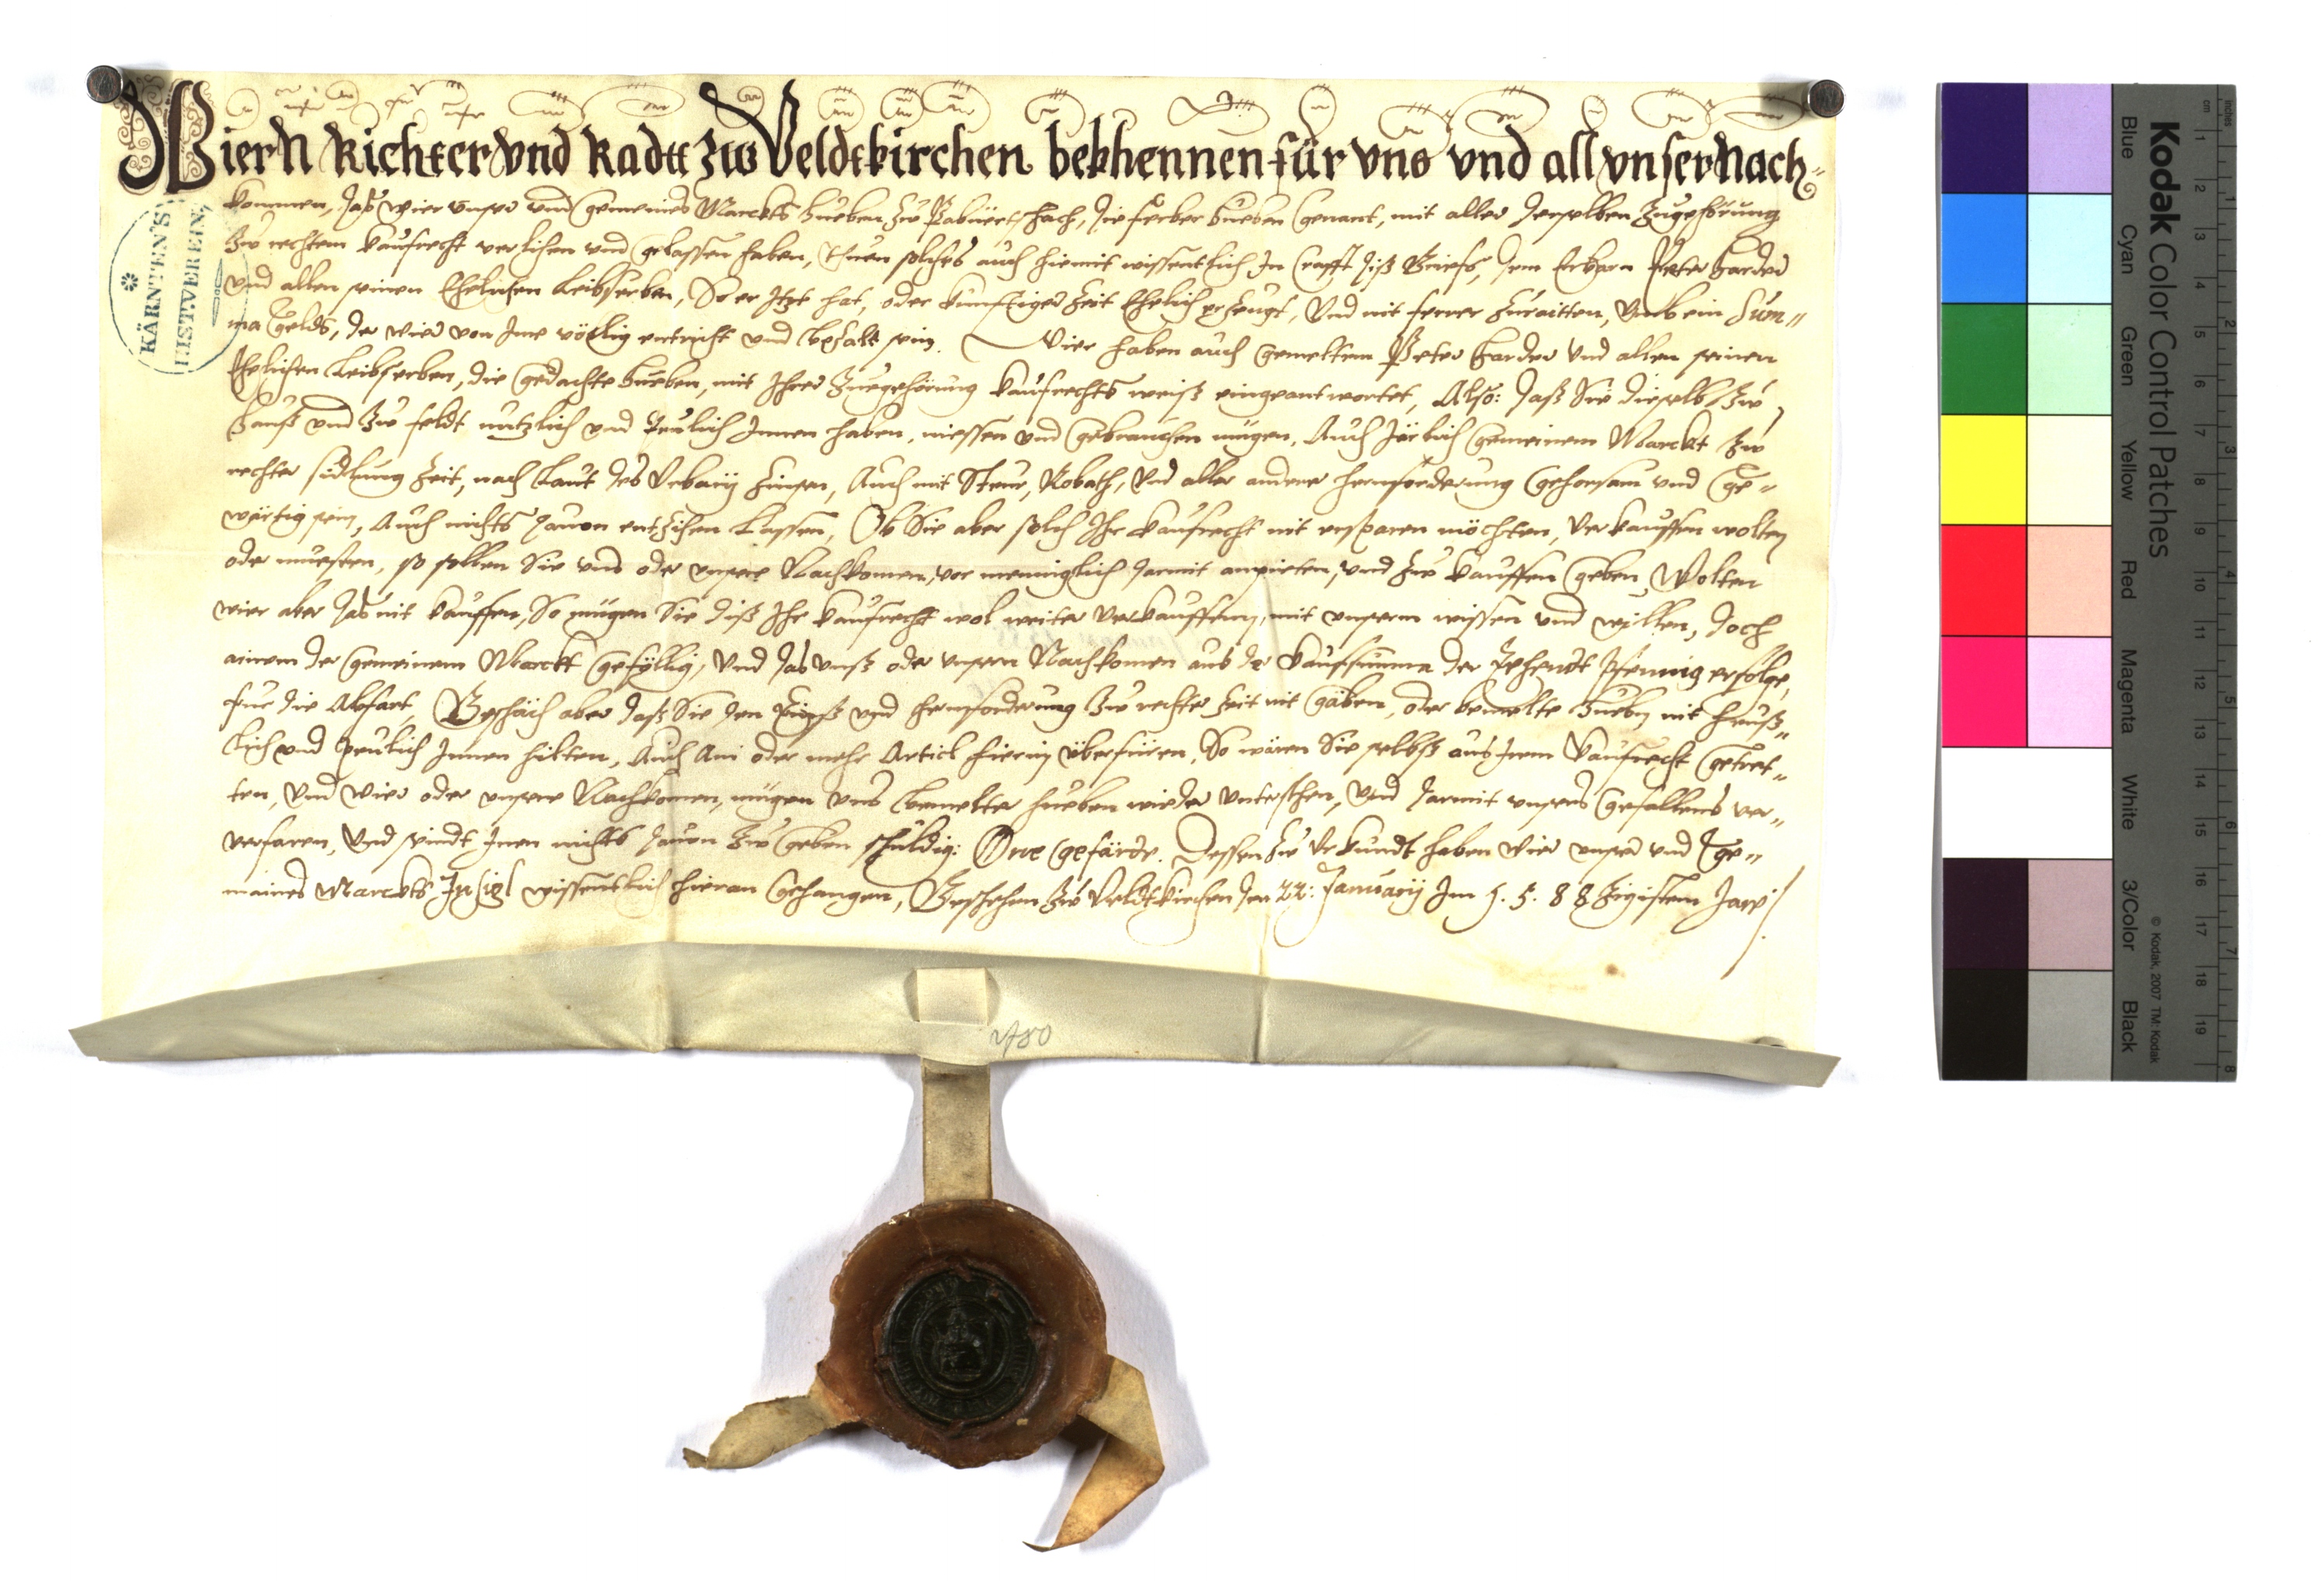 Wier N Richter vnd Radtt zw Veldtkirchen bekhennen für vns vnd all vnser Nach-
komen, das wier vnser vnd gemeines Marckts hueben zu die ferber hueben genant, mit aller derselben Zugehörung
zu rechtem kaufrecht verlihen vnd gelassen haben, thuen solches auch hiemit wissentlich In crafft diß Briefs, dem Erbarn Peter
vnd allen seinen Ehelichen Leibserben, So er Jtzt hat, oder künftiger Zeit Ehelich erzeugt, Vnd nit ferrer zuraitten, Vmb ein Sum-
ma Gelds, der wier von Jme völlig entricht vnd bezalt sein. Wier haben auch gemeltem Peter vnd allen seinen
Ehelichen Leibserben, die gedachte hueben, mit Jhrer Zuegehörung kaufrechts weiß eingeantwortet, Also: daß Sie dieselb Zu
hauß vnd zu feldt nutzlich vnd Peulich Jnnen haben, niessen vnd gebrauchen mügen, Auch Järlich gemeinem Marckt zu
rechter stifftung Zeit, nach laut des Vrbarij Zinsen, Auch mit Steur, Robath, Vnd aller anderer hernforderung gehorsam vnd ge-
wärtig sein, Auch nichts dauon entziehen lassen, Ob Sie aber solch Jhr kaufrecht nit ersparen möchten, Verkauffen wolten
oder muesten, so sollen Sie vns oder vnsere Nachkomen, vor menniglich darmit anpieten, vnd zu kauffen geben, Wolten
wier aber das nit kauffen, So mügen Sie diß Jhr kaufrecht wol weiter Verkauffen, mit vnserm wissen vnd willen, doch
ainem der gemeinem Marckt gefellig, Vnd das vnß oder vnsern Nachkomen aus der kaufsumma der Zehendt Pfennig erfolge,
für die Abfart, Beschäch aber daß Sie den Zinß vnd hernforderung zu rechter Zeit nit gäben, oder bemelte hueben nit heuß-
lich vnd Peulich Jnnen hielten, Auch Ain oder mehr Articl hierin überfüren, So wären Sie selbst aus Jrem kaufrecht getret-
ten, Vnd wier oder vnsere Nachkomen, mügen vns bemelter hueben wieder vntersthen, Vnd darmit vnsers gefallens ver-
verfaren, Vnd seindt Jnen nichts dauon zu geben schuldig: One geferde. Dessen zu Vrkundt haben wier vnser vnd ge-
maines Marckts Jnsigl wissentlich hieran gehangen, Beschehen zu Veldtkirchen den 22: Januarij Jm 1. 5. 88 Zigisten Jare
KÄRNTEN'S
780
Kodak Color Control Patches
Blue Cyan Green Yellow Red Magenta White 3/Color Black
© Kodak, 2007 TM: Kodak
inches 1 2 3 4 5 6 7 8
cm 1 2 3 4 5 6 7 8 9 10 11 12 13 14 15 16 17 18 19